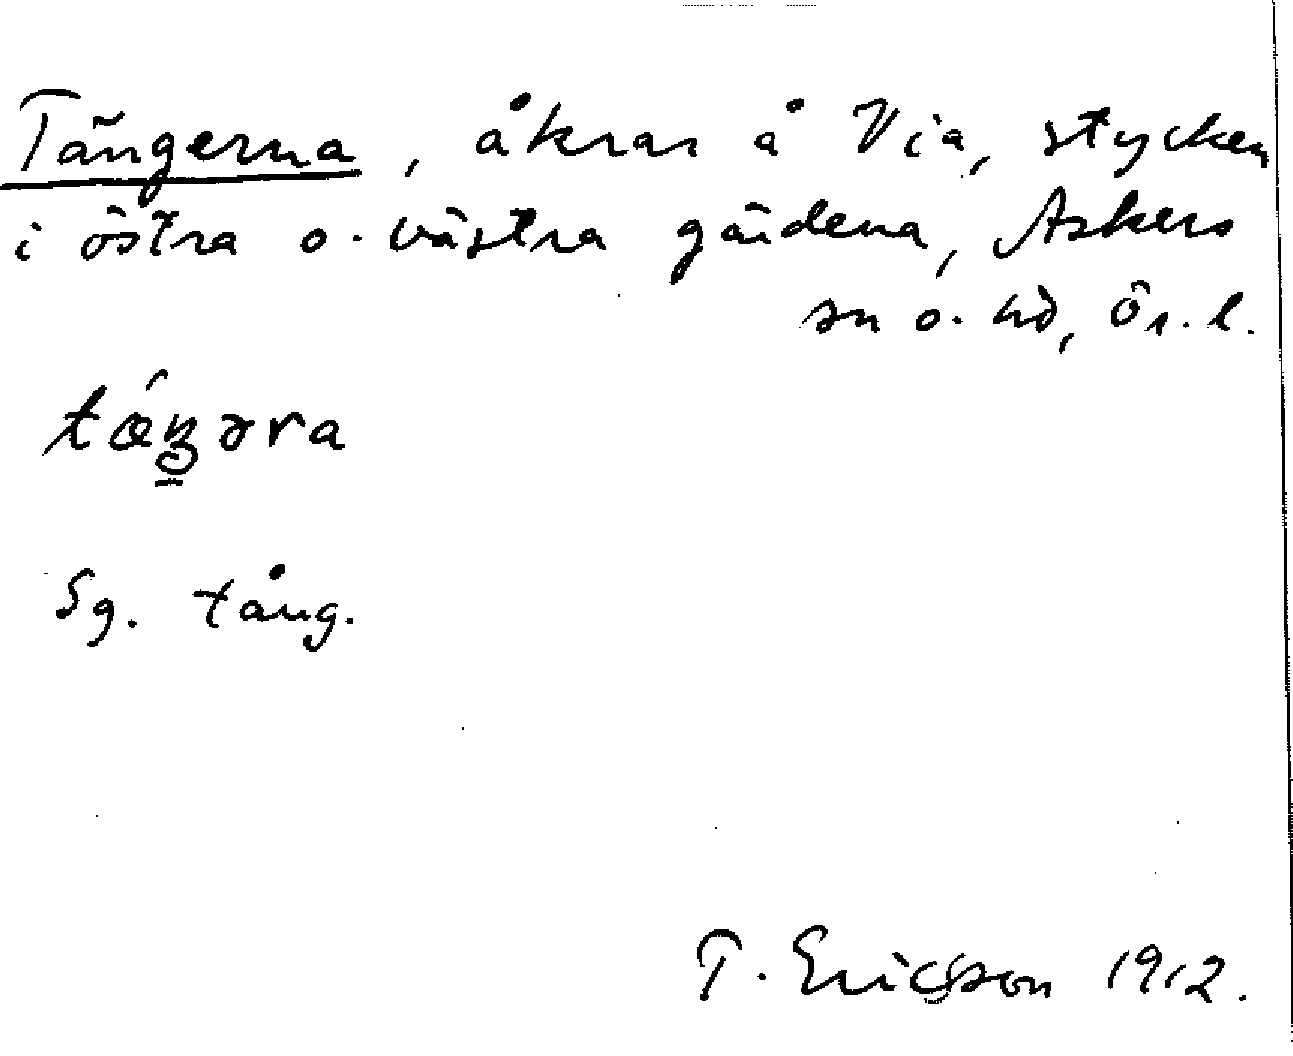 Tängerna, åkrar å Via, stycken
i östra o. västra gärdena, Askers
sn o. hd, Ör. l.
tǽŋəra
Sg. tång.
T. Ericsson 1912.